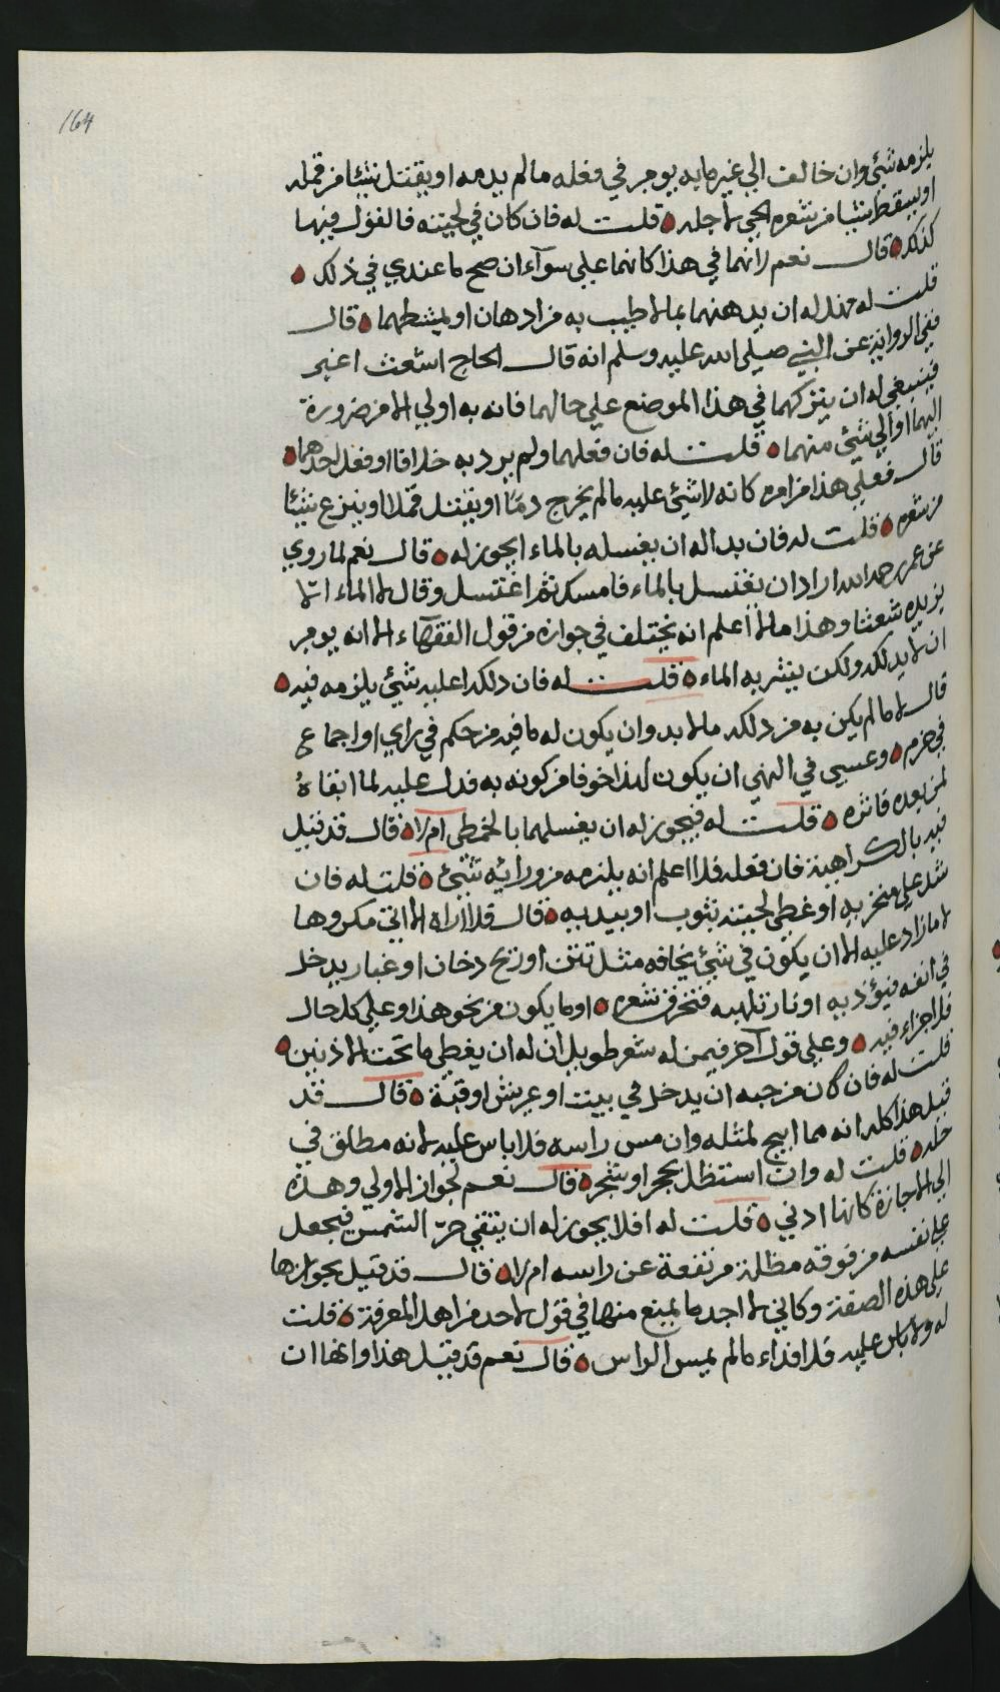 164
يلزمه شيء وان خالف الي غير ما به يومر في فعله ما لم يدمه او يقتل شيئا من قمله
او يسقط شيئا من شعره الحي لاجله قلت له فان كان في لحيته فالقول فيها
كذلك قال نعم لانهما في هذا كانهما علي سوآء ان صح ما عندي في ذلك
قلت له فهل له ان يدهنهما بما لا طيب به من ادهان او يمشطهما قال
ففي الرواية عن النبي صلي الله عليه وسلم انه قال الحاج اشعث اغبر
فينبغي له ان يتركهما في هذا الموضع علي حالهما فانه به اولي الا من ضرورة
اليهما او الي شيء منهما قلت له فان فعلهما ولم يرد به خلافا او فعل احدهما
قال فعلي هذا من امره كانه لا شيء عليه ما لم يخرج دما او يقتل قملا او ينزع شيئا
من شعره قلت له فان بدا له ان يغسله بالماء ايجوز له قال نعم لما روي
عن عمر رحمه الله اراد ان يغتسل بالماء فامسك ثم اغتسل وقال لا الماء الا
يزيده شعثا وهذا ما لا اعلم انه يختلف في جوازه من قول الفقهآء الا انه يومر
ان لا يدلكه ولكن ينثر به الماء قلت له فان دلكه اعليه شيء يلزمه فيه
قال لا ما لم يكن به من دلكه ما لا بد وان يكون له ما فيه من حكم في راي او اجماع
في حرم وعسي في النهي ان يكون لهذا خوفا من كونه به فدل عليه لما ابقاه
لمن بعده فاثره قلت له فيجوز له ان يغسلهما بالخطمي ام لا قال قد قيل
فيه بالكراهية فان فعله فلا اعلم انه يلزمه من ورائه شيء قلت له فان
شد علي منخريه او غطي لحيته بثوب او بيديه قال فلا اراه الا اتي مكروها
لا ما زاد عليه الا ان يكون في شيء يخافه مثل نتن او ريح دخان او غبار يدخل
في انفه فيؤذيه او نار تلهبه فتحرق شعره او ما يكون من نحو هذا وعلي كل حال
فلا جزاء فيه وعلي قول آخر فيمن له شعر طويل ان له ان يغطي ما تحت الاذنين
قلت له فان كان من جبه ان يدخل في بيت او عريش او قبة قال قد
قيل هذا كله انه مما ابيح لمثله وان مس راسه فلا باس عليه لانه مطلق في
حله قلت له وان استظل بحجر او شجر قال نعم لجواز الاولي وهذه
الي الاجازة كانها ادني قلت له افلا يجوز له ان يتقي حر الشمس فيجعل
علي نفسه من فوقه مظلة مرتفعة عن راسه ام لا قال قد قيل بجوازها
علي هذه الصفة وكاني لا اجد ما يمنع منها في قول لاحد من اهل المعرفة قلت
له ولا باس عليه فلا فداء ما لم يمس الراس قال نعم قد قيل هذا وانها ان